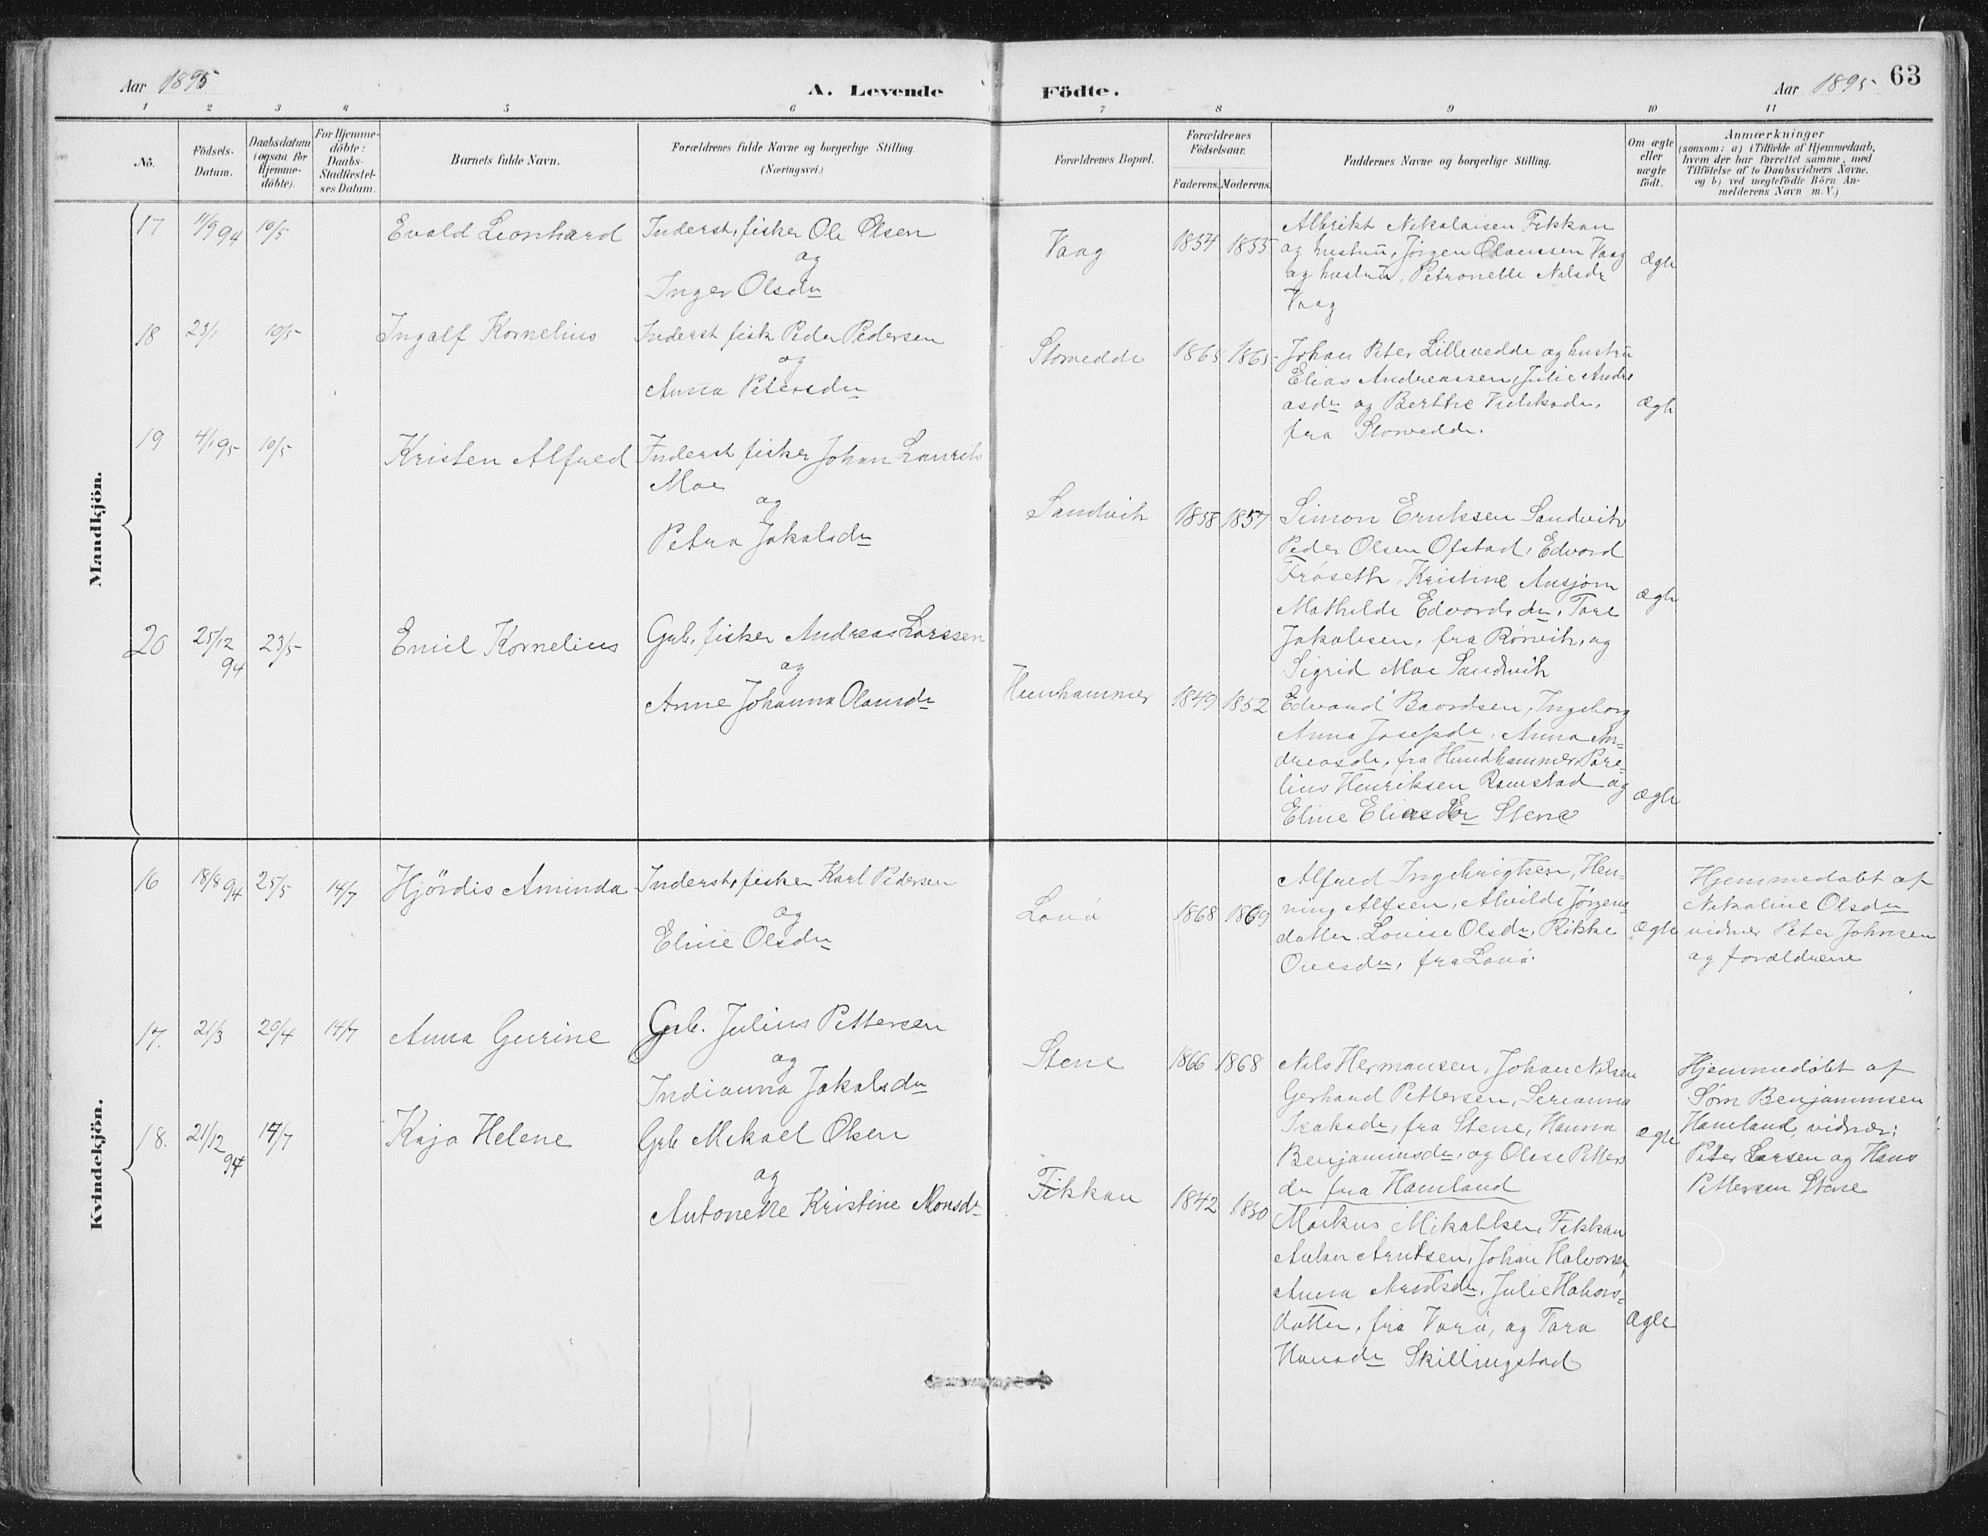 Aar 1895
A. Levende Födte.
Aar 1895
63
1 2 3 4 5 6 7 8 9 10 11
No.
Födsels-Datum.
Daabsdatum (ogsaa for Hjemme-döbte).
For Hjemme-döbte: Daabs-Stadfæstel-ses Datum.
Barnets fulde Navn.
Forældrenes fulde Navne og borgerlige Stilling.
(Næringsvei.)
Forældrenes Bopæl.
Forældrenes Födselsaar.
Faderens. Moderens.
Faddernes Navne og borgerlige Stilling.
Om ægte eller uægte födt.
Anmærkninger
(saasom: a) i Tilfælde af Hjemmedaab,
hvem der har forrettet samme, med
Tilföielse af to Daabsvidners Navne.
og b) ved uægtefödte Börn An-
melderens Navn m. V.)
Mandkjön.
17 11/9 94 10/5 Evald Leonhard
Inderst, fisker Ole Olsen
og
Inger Olsdr
Vaag 1854 1855
Albrikt Nikolaisen Fikkan
og hustru, Jørgen Olaussen Vaag
og hustru, Petronelle Nilsdr
Vaag
ægte
18 23/1 10/5 Ingalf Kornelius
Inderst fisk Peder Pedersen
og
Anna Petersdr
Storvedde 1865 1865
Johan Peter Lillevedde og hustru
Elias Andreassen, Julie Andre
asdr og Berthe
fra Storvedde.
ægte
19 4/1 95 10/5 Kristen Alfred
Inderst fisker Johan Laurits
Moe
og
Petra Jakobsdr
Sandvik 1858 1857
Simon Eriksen Sandvik
Peder Olsen Ofstad, Edvard
Frøseth, Kristine Ansjøm
Mathilde Edvardsdr, Tore
Jakobsen, fra Rørvik, og
Sigrid Moe Sandvik
ægte
20 25/12 94 23/5 Emil Kornelius
Grb. fisker Andreas Larssen
og
Anne Johanna Olausdr
Hunhammer 1849 1852
Edvard Baardsen, Ingeborg
Anna Josefsdr, Anna An-
dreasdr, fra Hundhammer, Pare-
lius Henriksen Ramstad og
Eline Eliasdr Stene
ægte
Kvindekjön.
16 18/8 94 25/5 14/7 Hjördis Aminda
Inderst, fisker Karl Pedersen
og
Eline Olsdr
Lauø 1868 1869
Alfred Ingebrigtsen, Hen-
ning Alfsen, Alvilde Jørgens
datter, Louise Olsdr, Rikke
Ovesdr, fra Lauø.
ægte
Hjemmedøbt af
Nikoline Olsdr
vidner Peter Johnsen
og forældrene
17. 21/3 20/4 14/7 Anna Gurine
Grb. Julius Pettersen
og
Indianna Jakobsdr
Stene 1866 1868
Nils Hermansen, Johan Nilsen
Gerhard Pettersen, Serianna
Isaksdr, fra Stene, Hanna
Benjaminsdr, og Oline Petters
dr fra Hamland
ægte
Hjemmedøbt af
Sørn Benjaminsen
Hamland, vidner:
Peter Larsen og Hans
Pettersen Stene
18. 21/12 94 14/7 Kaja Helene
Grb Mikael Olsen
og
Antonette Kristine Monsdr
Fikkan 1842 1850
Markus Mikalsen, Fikkan
Anton Arntsen, Johan Halvorsen,
Anna Arntsdr, Julie Halvors-
datter, fra Varø, og Tora
Hansdr Skillingstad
ægte